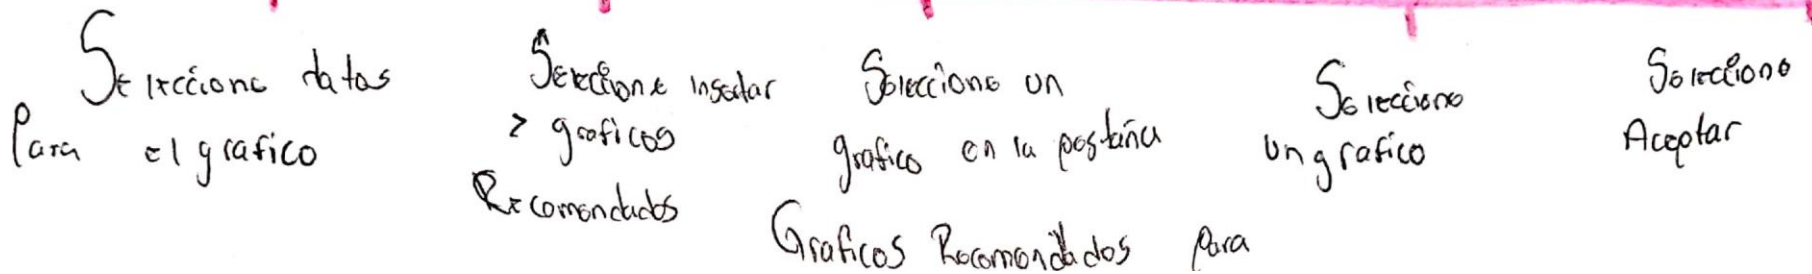 Seleccione datos
Para el grafico
Seleccione insertar
> graficos
Recomendados
Seleccione un
grafico en la pestaña
Graficos Recomendados para
Seleccione
un grafico
Seleccione
Aceptar